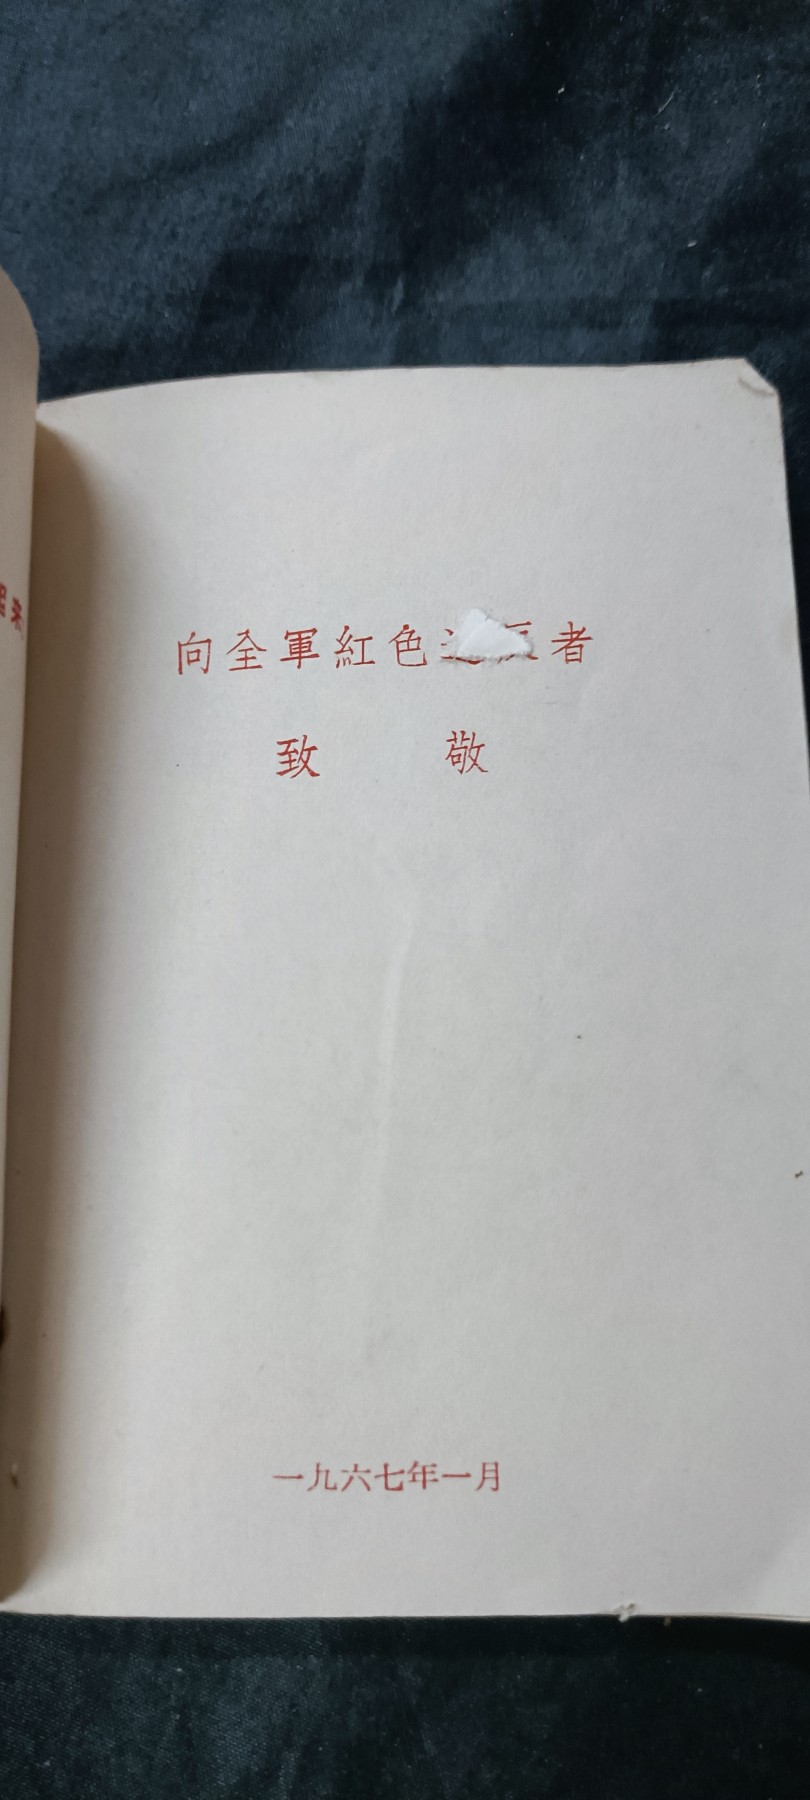 向全軍紅色 者
致 敬
一九六七年一月